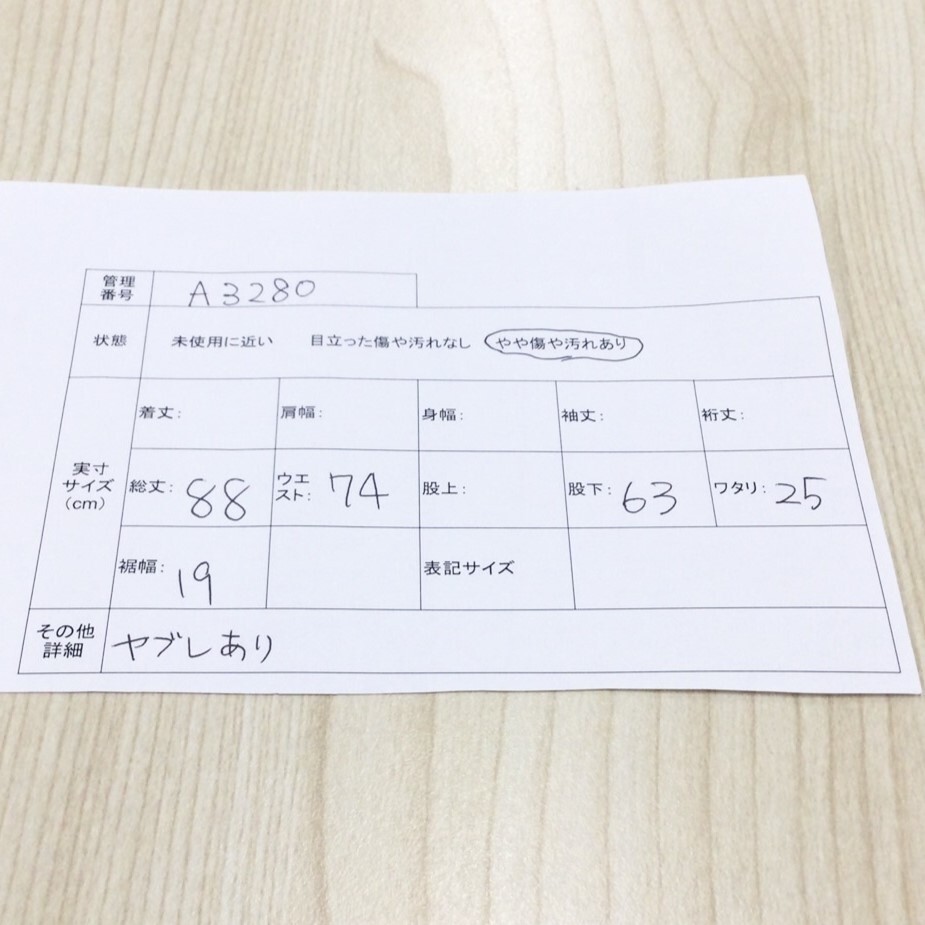 管理番号 A3280
状態 未使用に近い 目立った傷や汚れなし やや傷や汚れあり
実寸サイズ(cm)
着丈: 肩幅: 身幅: 袖丈: 裄丈:
総丈: 88 ウエスト: 74 股上: 股下: 63 ワタリ: 25
裾幅: 19 表記サイズ
その他詳細 ヤブレあり